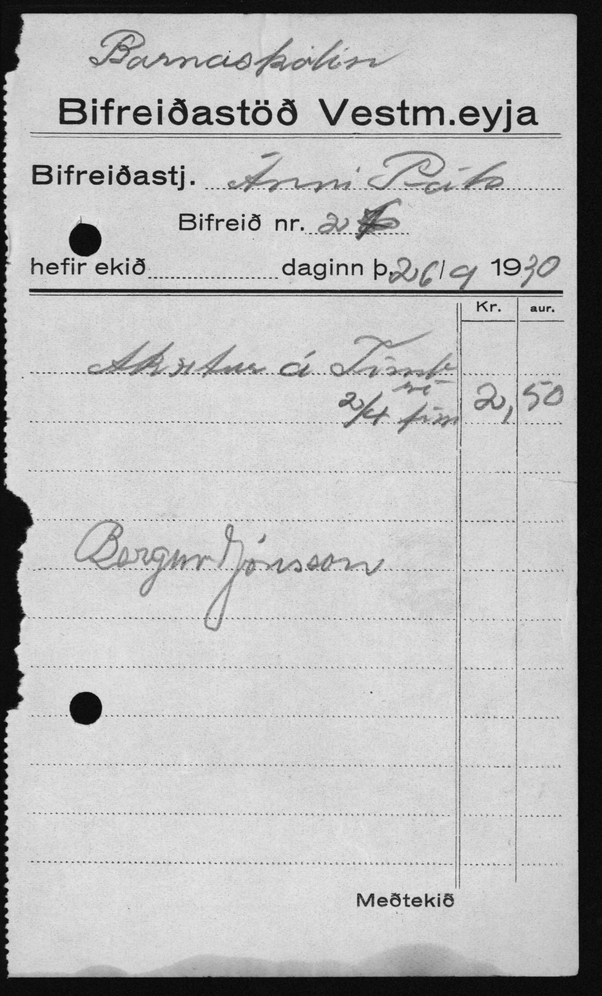 Barnaskólin
Bifreiðastöð Vestm.eyja
Bifreiðastj. Árni
Bifreið nr. 2
hefir ekið daginn þ. 26/9 1930
Kr. aur.
Akstur á Timb
2/4 tím 2,50
Bergur Jónsson
Meðtekið